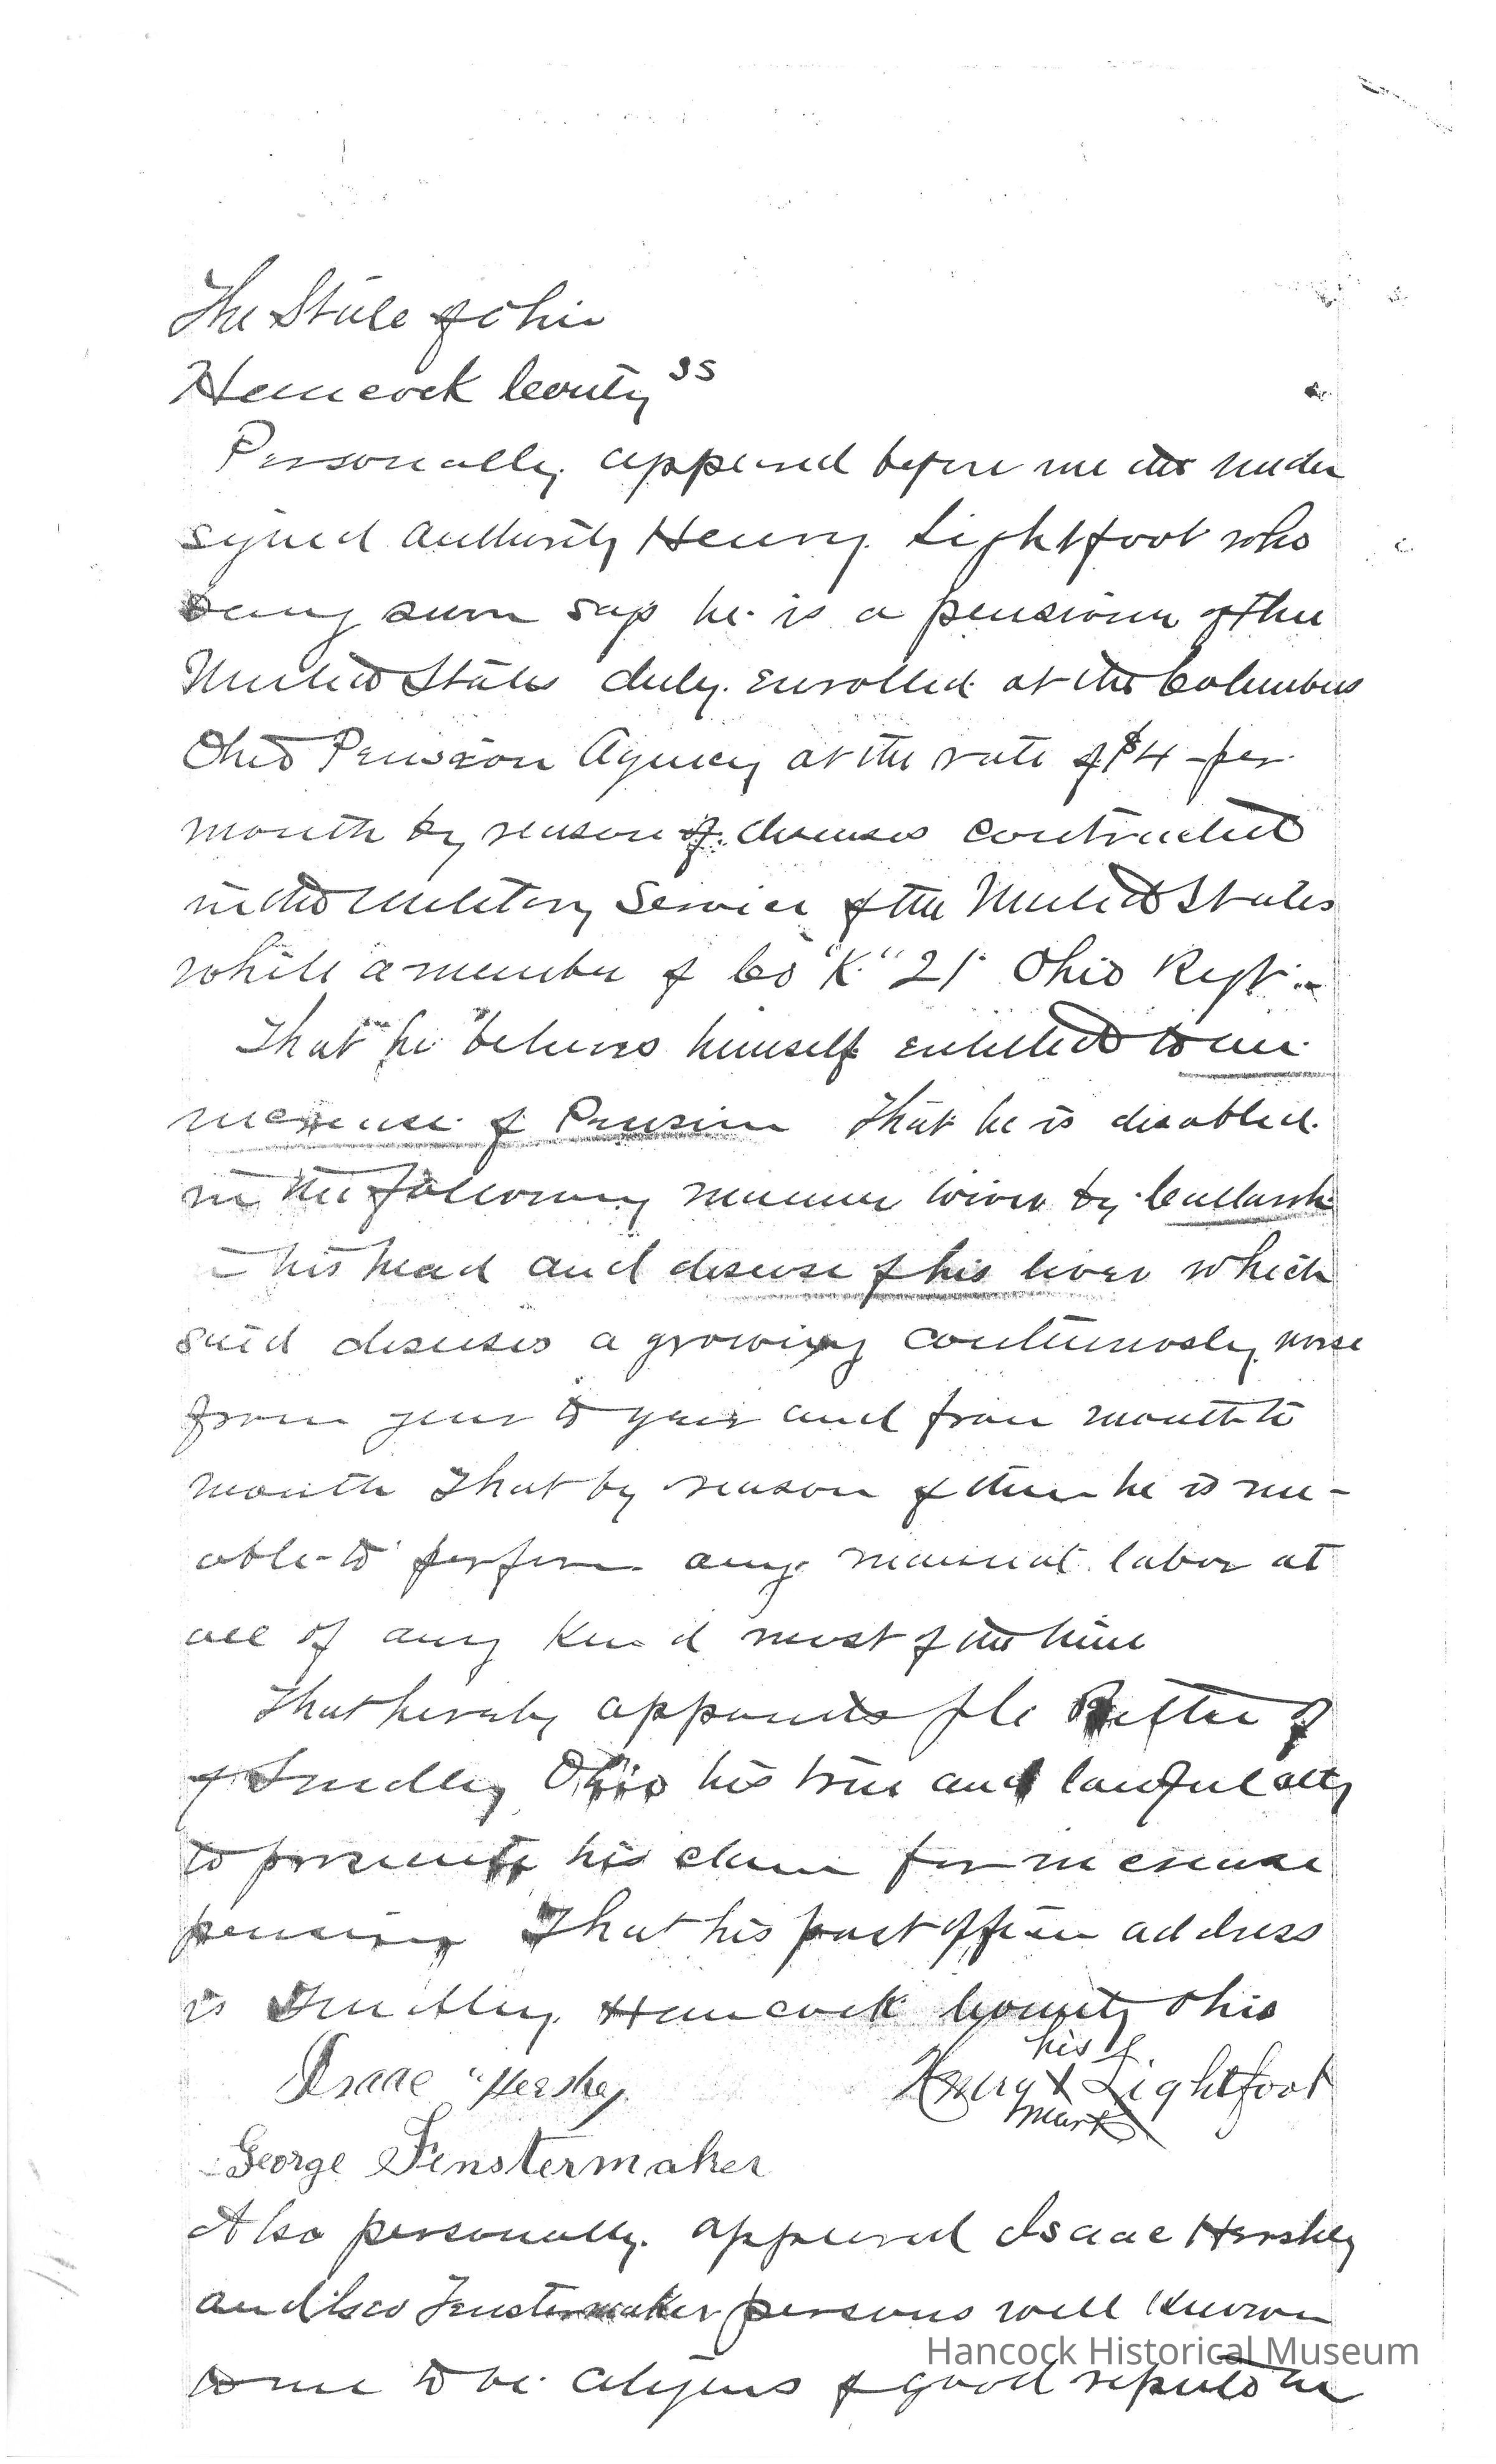 The State of Ohio
Hancock County ss
Personally appeared before me the under
signed authority Henry Lightfoot who
being sworn says he is a pensioner of the
United States duly enrolled at the Columbus
Ohio Pension Agency at the rate of $4 per
month by reason of diseases contracted
in the military Service of the United States
while a member of Co "K" 21 Ohio Regt.
That he believes himself entitled to an
increase of Pension That he is disabled
in the following manner by Catarrh
in his head and disease of his liver which
said diseases a growing continuously worse
from year to year and from month to
month That by reason of them he is un-
able to perform any manual labor at
all of any kind most of the time
That hereby appoints
of Findley Ohio his true and lawful atty
to prosecute his claim for increase
pension That his post office address
is Findley Hancock County Ohio
Isaac Hershey
his
Henry X Lightfoot
mark
George Fenstermaker
Also personally appeared Isaac Hershey
and Geo Fenstermaker persons well known
to me to be citizens of good repute
Hancock Historical Museum